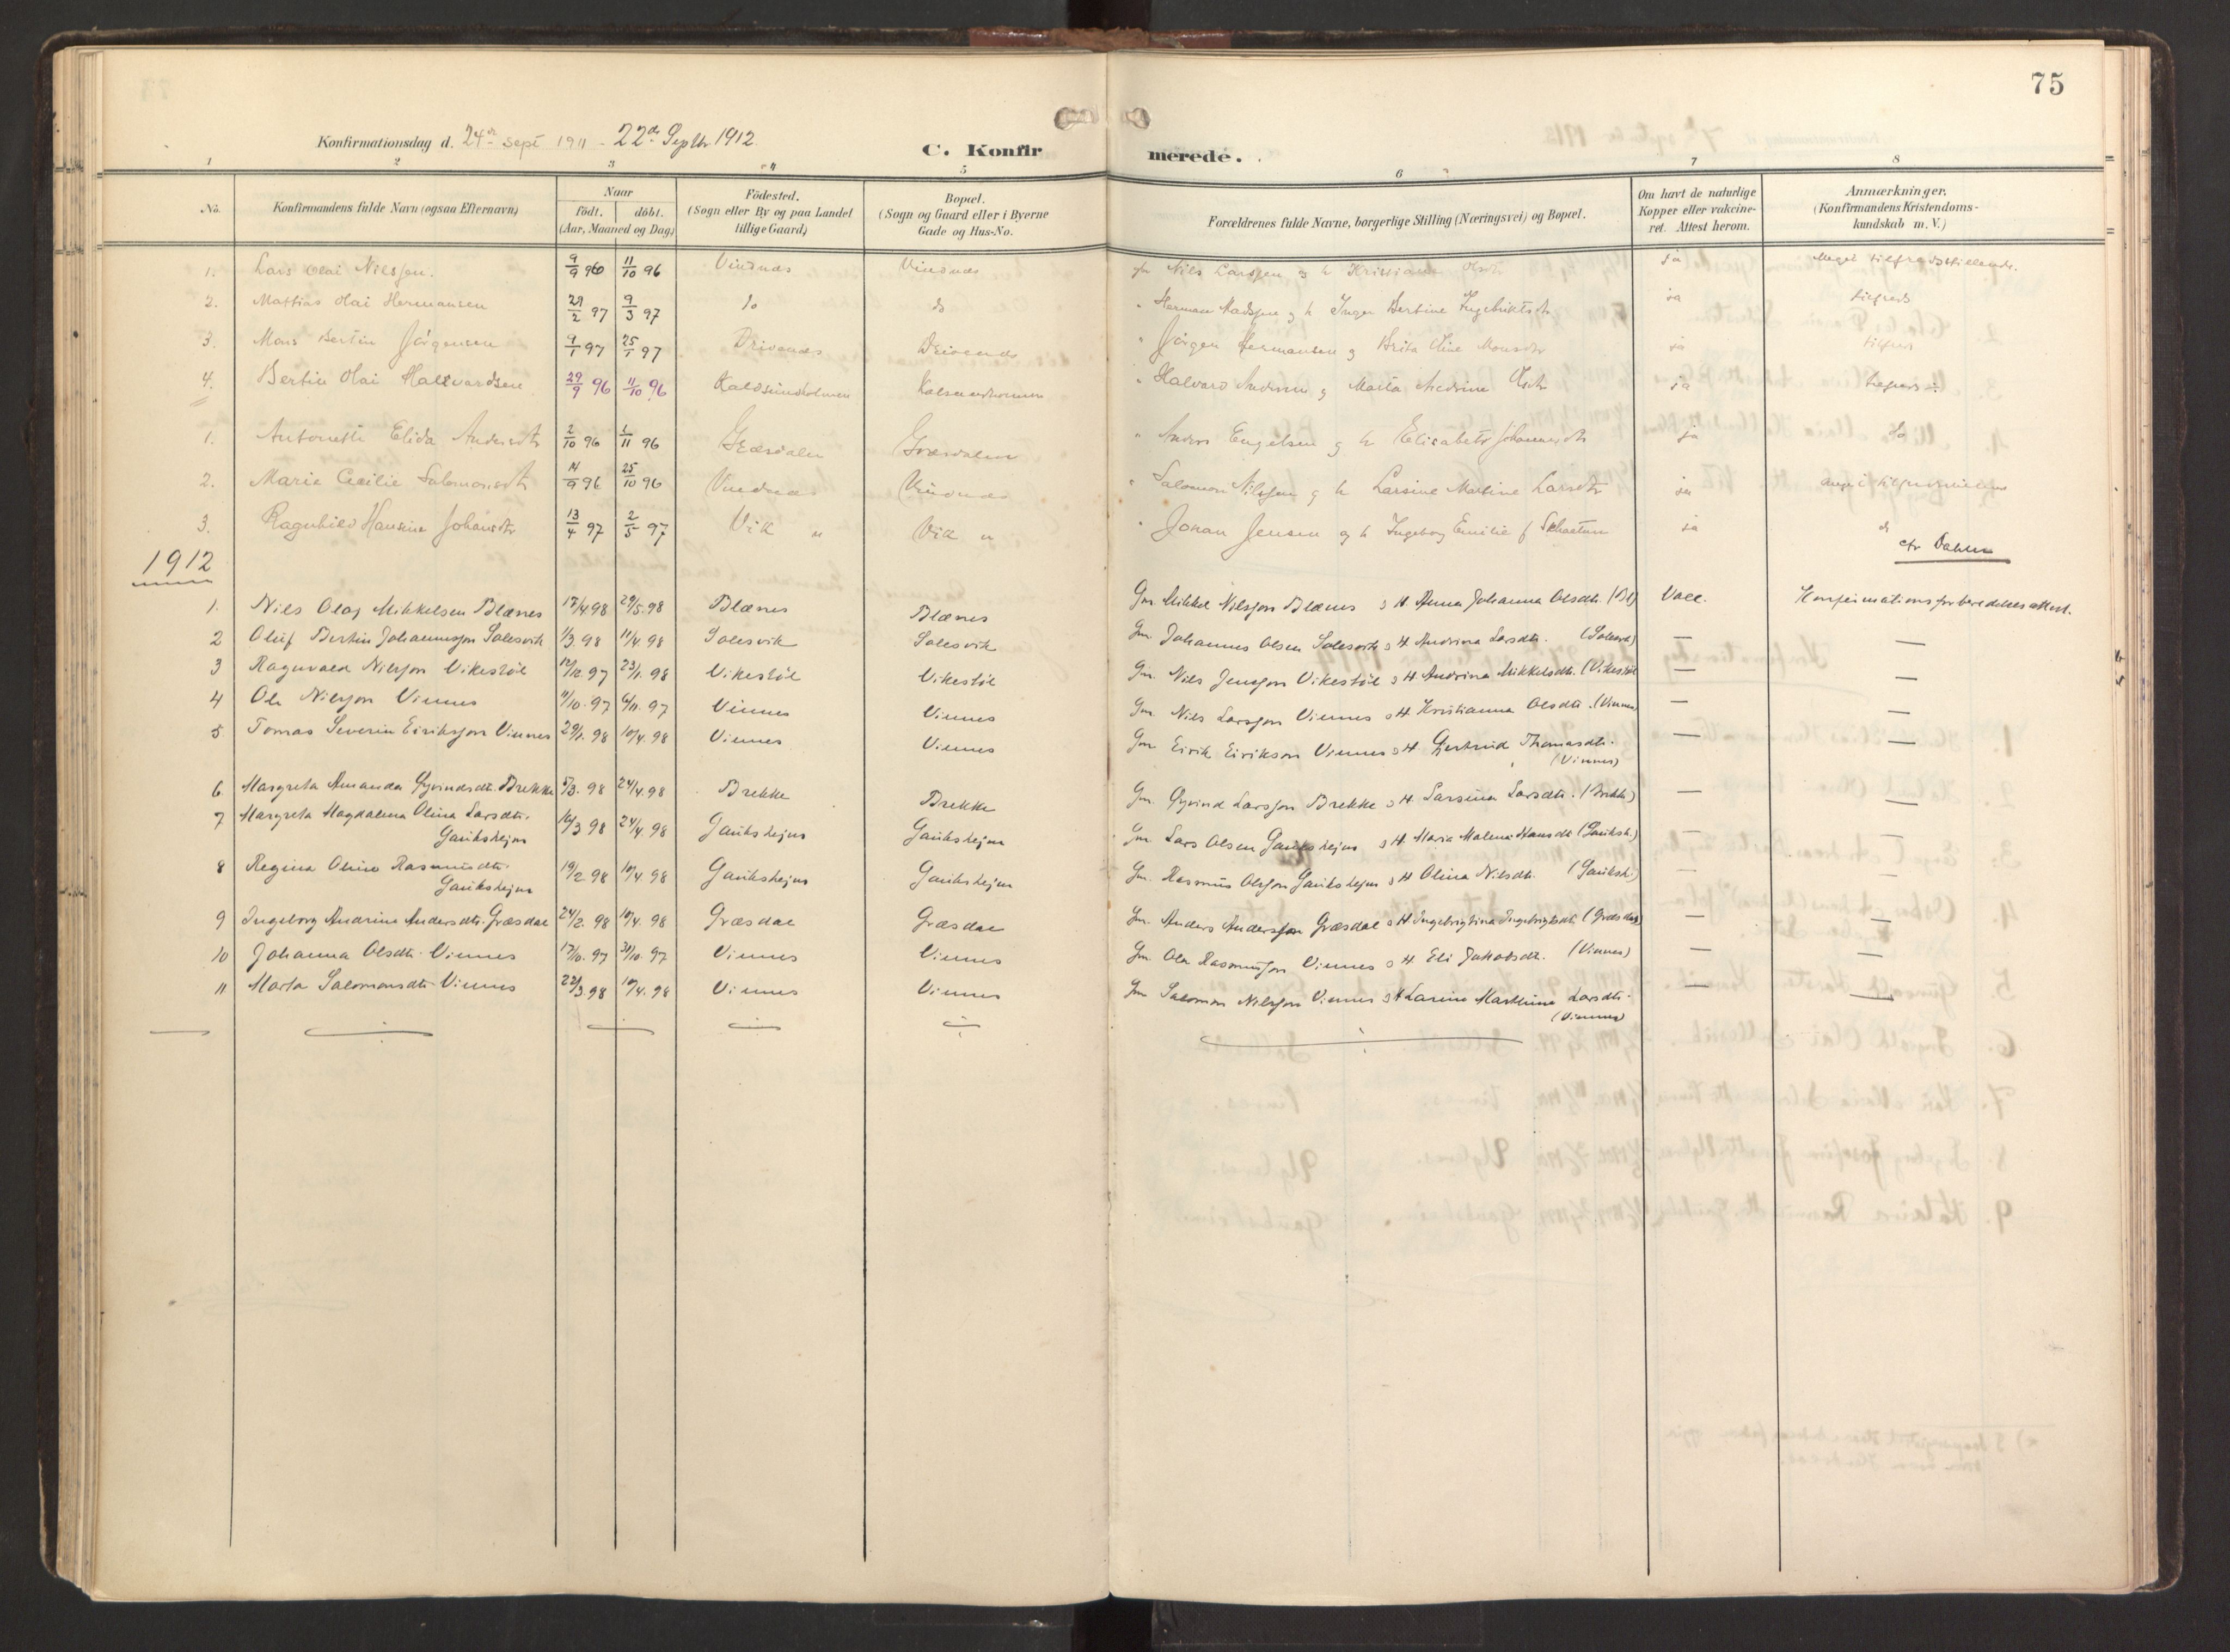 75
Konfirmationsdag d. 24de sept 1911 - 22de Septbr 1912.
C. Konfirmerede.
1 2 3 4 5 6 7 8
No. | Konfirmandens fulde Navn (ogsaa Efternavn) | Naar födt. | döbt. (Aar, Maaned og Dag.) | Födested. (Sogn eller By og paa Landet tillige Gaard) | Bopæl. (Sogn og Gaard eller i Byerne Gade og Hus-No. | Forældrenes fulde Navne, borgerlige Stilling (Næringsvei) og Bopæl. | Om havt de naturlige Kopper eller vakcineret. Attest herom. | Anmærkninger. (Konfirmandens Kristendomskundskab m. V.)
1. Lars Olai Nilssen. 9/9 96 11/10 96 Vindnæs Vindnæs Nils Larssen og h Kristiane Olsdtr ja Meget tilfredsstillende.
2. Mattias Olai Hermansen 29/2 97 9/3 97 do do " Herman Madssen og h Inger Bertine Ingebriktsdtr ja tilfreds
3. Mons Bertin Jörgensen 9/1 97 25/1 97 Drivenes Drivenes " Jörgen Hermansen og Brita Eline Monsdtr ja tilfreds
4. Bertin Olai Hallvardsen 29/9 96 11/10 96 Kalsundholmen Kalsundholmen " Halvard Andersen og Marta Andrine Olsdtr ja tilfreds
1. Antonette Elida Andersdtr 2/10 96 1/11 96 Græsdalen Græsdalen " Anders Engelsen og h Elisabeth Johannesdtr ja do
2. Marie Cecilie Salomonsdtr 14/9 96 25/10 96 Vindnæs Vindnæs " Salomon Nilssen og h Larsine Martine Larsdtr ja
3. Ragnhild Hansine Johansdtr 13/4 97 2/5 97 Vik " Vik " " Johan Jensen og h Ingeborg Emilie f ja do
Chr Dahlen
1912
1. Nils Olaj Mikkelsen Blænes 17/4 98 29/5. 98 Blænes Blænes Gm. Mikkel Nilsson Blænes o H. Anna Johanna Olsdtr. (Bl) Vacc. Konfirmationsforberedelsesattest.
2 Oluf Bertin Johannesson Salesvik 1/3 98 11/4. 98 Salesvik Salesvik Gm. Johannes Olsen Salesvik o H. Andrina Larsdtr. (Salesvik) — —
3 Ragnvald Nilsson Vikestöl 12/12. 97 23/1. 98 Vikestöl Vikestöl Gm. Nils Jensson Vikestöl o H. Andrina Mikkelsdtr. (Vikestöl — —
4 Ole Nilsson Vinnes 11/10. 97 6/11. 97 Vinnes Vinnes Gm. Nils Larsson Vinnes o H. Kristianna Olsdtr. (Vinnes) — —
5 Tomas Severin Eiriksson Vinnes 29/1. 98 10/4. 98 Vinnes Vinnes Gm Eirik Eirikson Vinnes o H. Gjertrud Thomasdtr.
(Vinnes) — —
6 Margreta Amanda Öyvindsdtr. Brekke 5/3. 98 24/4. 98 Brekke Brekke Gm. Öyvind Larsson Brekke o H. Larsina Larsdtr. (Brekke) — —
7 Margreta Magdalena Olina Larsdtr.
Gaukshejm 16/3 98 24/4. 98 Gaukshejm Gaukshejm Gm. Lars Olsen Gaukshejm o H. Maria Malena Hansdtr (Gauksh.) — —
8 Regina Olina Rasmusdtr.
Gaukshejm 19/2 98 10/4 98 Gaukshejm Gaukshejm Gm. Rasmus Olsson Gaukshejm o H Olina Nilsdtr. (Gauksh.) — —
9 Ingeborg Andrine Andersdtr. Græsdal 24/2. 98 10/4. 98 Græsdal Græsdal Gm. Anders Andersson Græsdal o H. Ingebrigtina Ingebrigtsdtr (Græsdal) — —
10 Johanna Olsdtr. Vinnes 17/10. 97 31/10. 97 Vinnes Vinnes Gm. Ole Rasmusson Vinnes o H Eli Jakobsdtr. (Vinnes) — —
11 Marta Salomonsdtr Vinnes 22/3. 98 10/4. 98 Vinnes Vinnes Gm Salomon Nilsson Vinnes o H Larsine Marthine Larsdtr.
(Vinnes) —